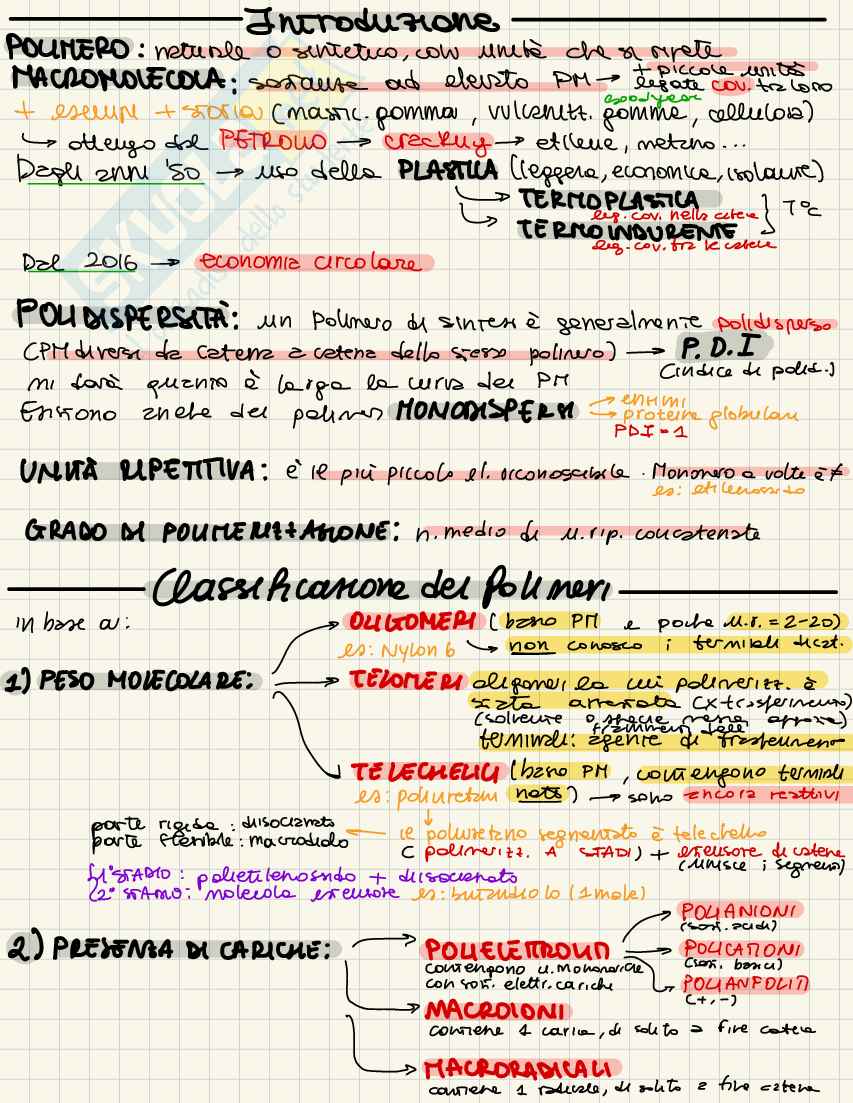 Introduzione
POLIMERO: naturale o sintetico, con unità che si ripete
MACROMOLECOLA: sostanza ad elevato PM → + piccole unità
legate cov. tra loro
goodyear
+ esempi + storia (mastic. gomma, vulcanizz. gomme, cellulosa)
↳ ottengo dal PETROLIO → cracking → etilene, metano...
Dagli anni '50 → uso della PLASTICA (leggera, economica, isolante)
↳ TERMOPLASTICA
leg. cov. nella catena
↳ TERMOINDURENTE
leg. cov. tra le catene
T°C
Dal 2016 → economia circolare
POLIDISPERSITÀ: un Polimero di sintesi è generalmente polidisperso
(PM diversi da catena a catena dello stesso polimero) → P.D.I
(indice di polid.)
mi darà quanto è larga la curva dei PM
Esistono anche dei polimeri MONODISPERSI → enzimi
→ proteine globulari
PDI = 1
UNITÀ RIPETITIVA: è il più piccolo el. riconoscibile. Monomero a volte è ≠
es: etilenossido
GRADO DI POLIMERIZZAZIONE: n. medio di u. rip. concatenate
Classificazione dei Polimeri
in base a:
OLIGOMERI (basso PM e poche u.r. = 2-20)
es: Nylon 6 → non conosco i terminali di cat.
1) PESO MOLECOLARE:
TELOMERI oligomeri la cui polimerizz. è
stata arrestata (x trasferimento)
(solvente o specie messa apposta)
frammenti delle
terminali: agente di trasferimento
TELECHELICI (basso PM, contengono terminali
es: poliuretani noti) → sono ancora reattivi
parte rigida: diisocianato
parte flessibile: macrodiolo
← il poliuretano segmentato è telechelico
(polimerizz. A STADI) + estensore di catena
(unisce i segmenti)
1° STADIO: polietilenossido + diisocianato
2° STADIO: molecola estensore es: butandiolo (1 mole)
2) PRESENZA DI CARICHE:
POLIELETTROLITI
contengono u. monomeriche
con sost. elettr. cariche
POLIANIONI
(sost. acidi)
POLICATIONI
(sost. basici)
POLIANFOLITI
(+,-)
MACROIONI
contiene 1 carica, di solito a fine catena
MACRORADICALI
contiene 1 radicale, di solito a fine catena